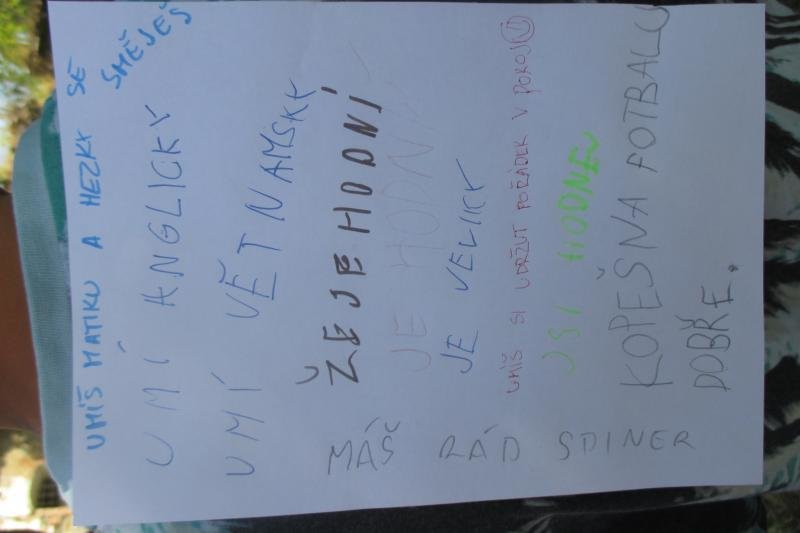 UMÍŠ MATIKU A HEZKY SE
SMĚJEŠ
UMÍ ANGLICKY
UMÍ VĚTNAMSKY
ŽE JE HODNÍ
JE HODNÍ
JE VELICKÝ
UMÍŠ SI UDRŽUT POŘÁDEK V POKOJI
JSI HODNEJ
KOPEŠ NA FOTBALU
DOBŘE.
MÁŠ RÁD SPINER